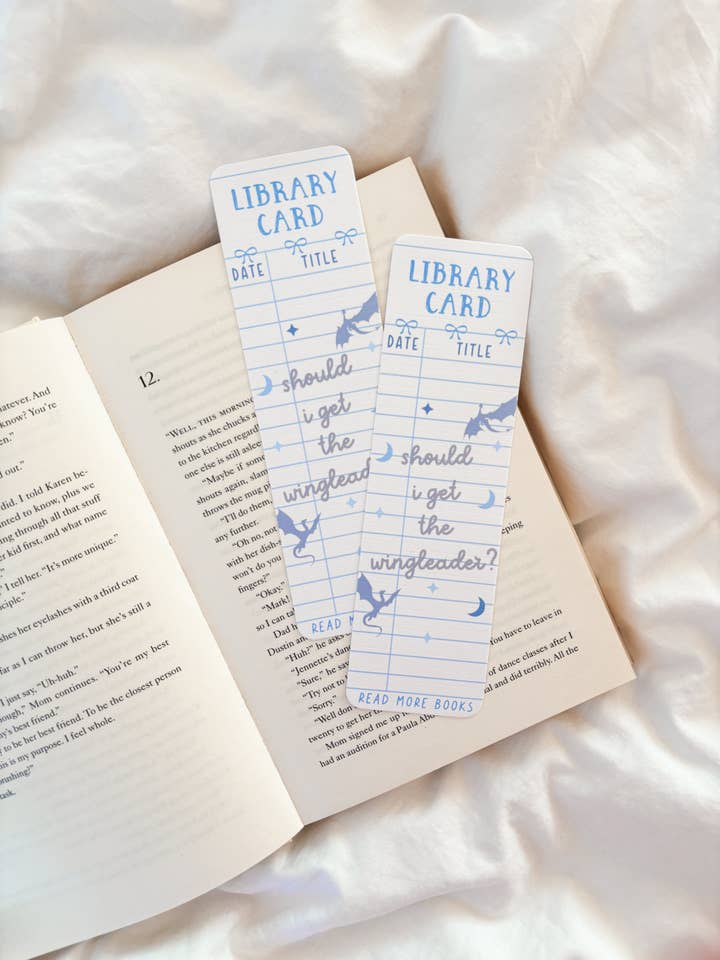 atever. And
know? You're
en."
d out."
did. I told Karen be-
anted to know, plus we
ing through all that stuff
er kid first, and what name
" I tell her. "It's more unique."
ciple."
shes her eyelashes with a third coat
far as I can throw her, but she's still a
I just say, "Uh-huh."
ough," Mom continues. "You're my best
y's best friend."
y to be her best friend. To be the closest person
is is my purpose. I feel whole.
oushing?"
task.
12.
"WELL, THIS MORNING
shouts as she chucks a
to the kitchen regardl
one else is still aslee
"Maybe if some
shouts again, slam
throws the mug
"I'll do them,
any further.
"Oh no, not
with her dish-
won't do you
fingers?"
"Okay,"
"Mark!
so I can ta
Dad h
Dustin an
"Huh?" he asks
"Jennette's danc
"Sure," he say
"Try not to
"Sorry."
"Well don't
twenty to get her
Mom signed me up
had an audition for a Paula Ab
eeping
You have to leave in
of dance classes after I
and did terribly. All the
LIBRARY
CARD
DATE TITLE
should
i get
the
winglead
READ M
LIBRARY
CARD
DATE TITLE
should
i get
the
wingleader?
READ MORE BOOKS